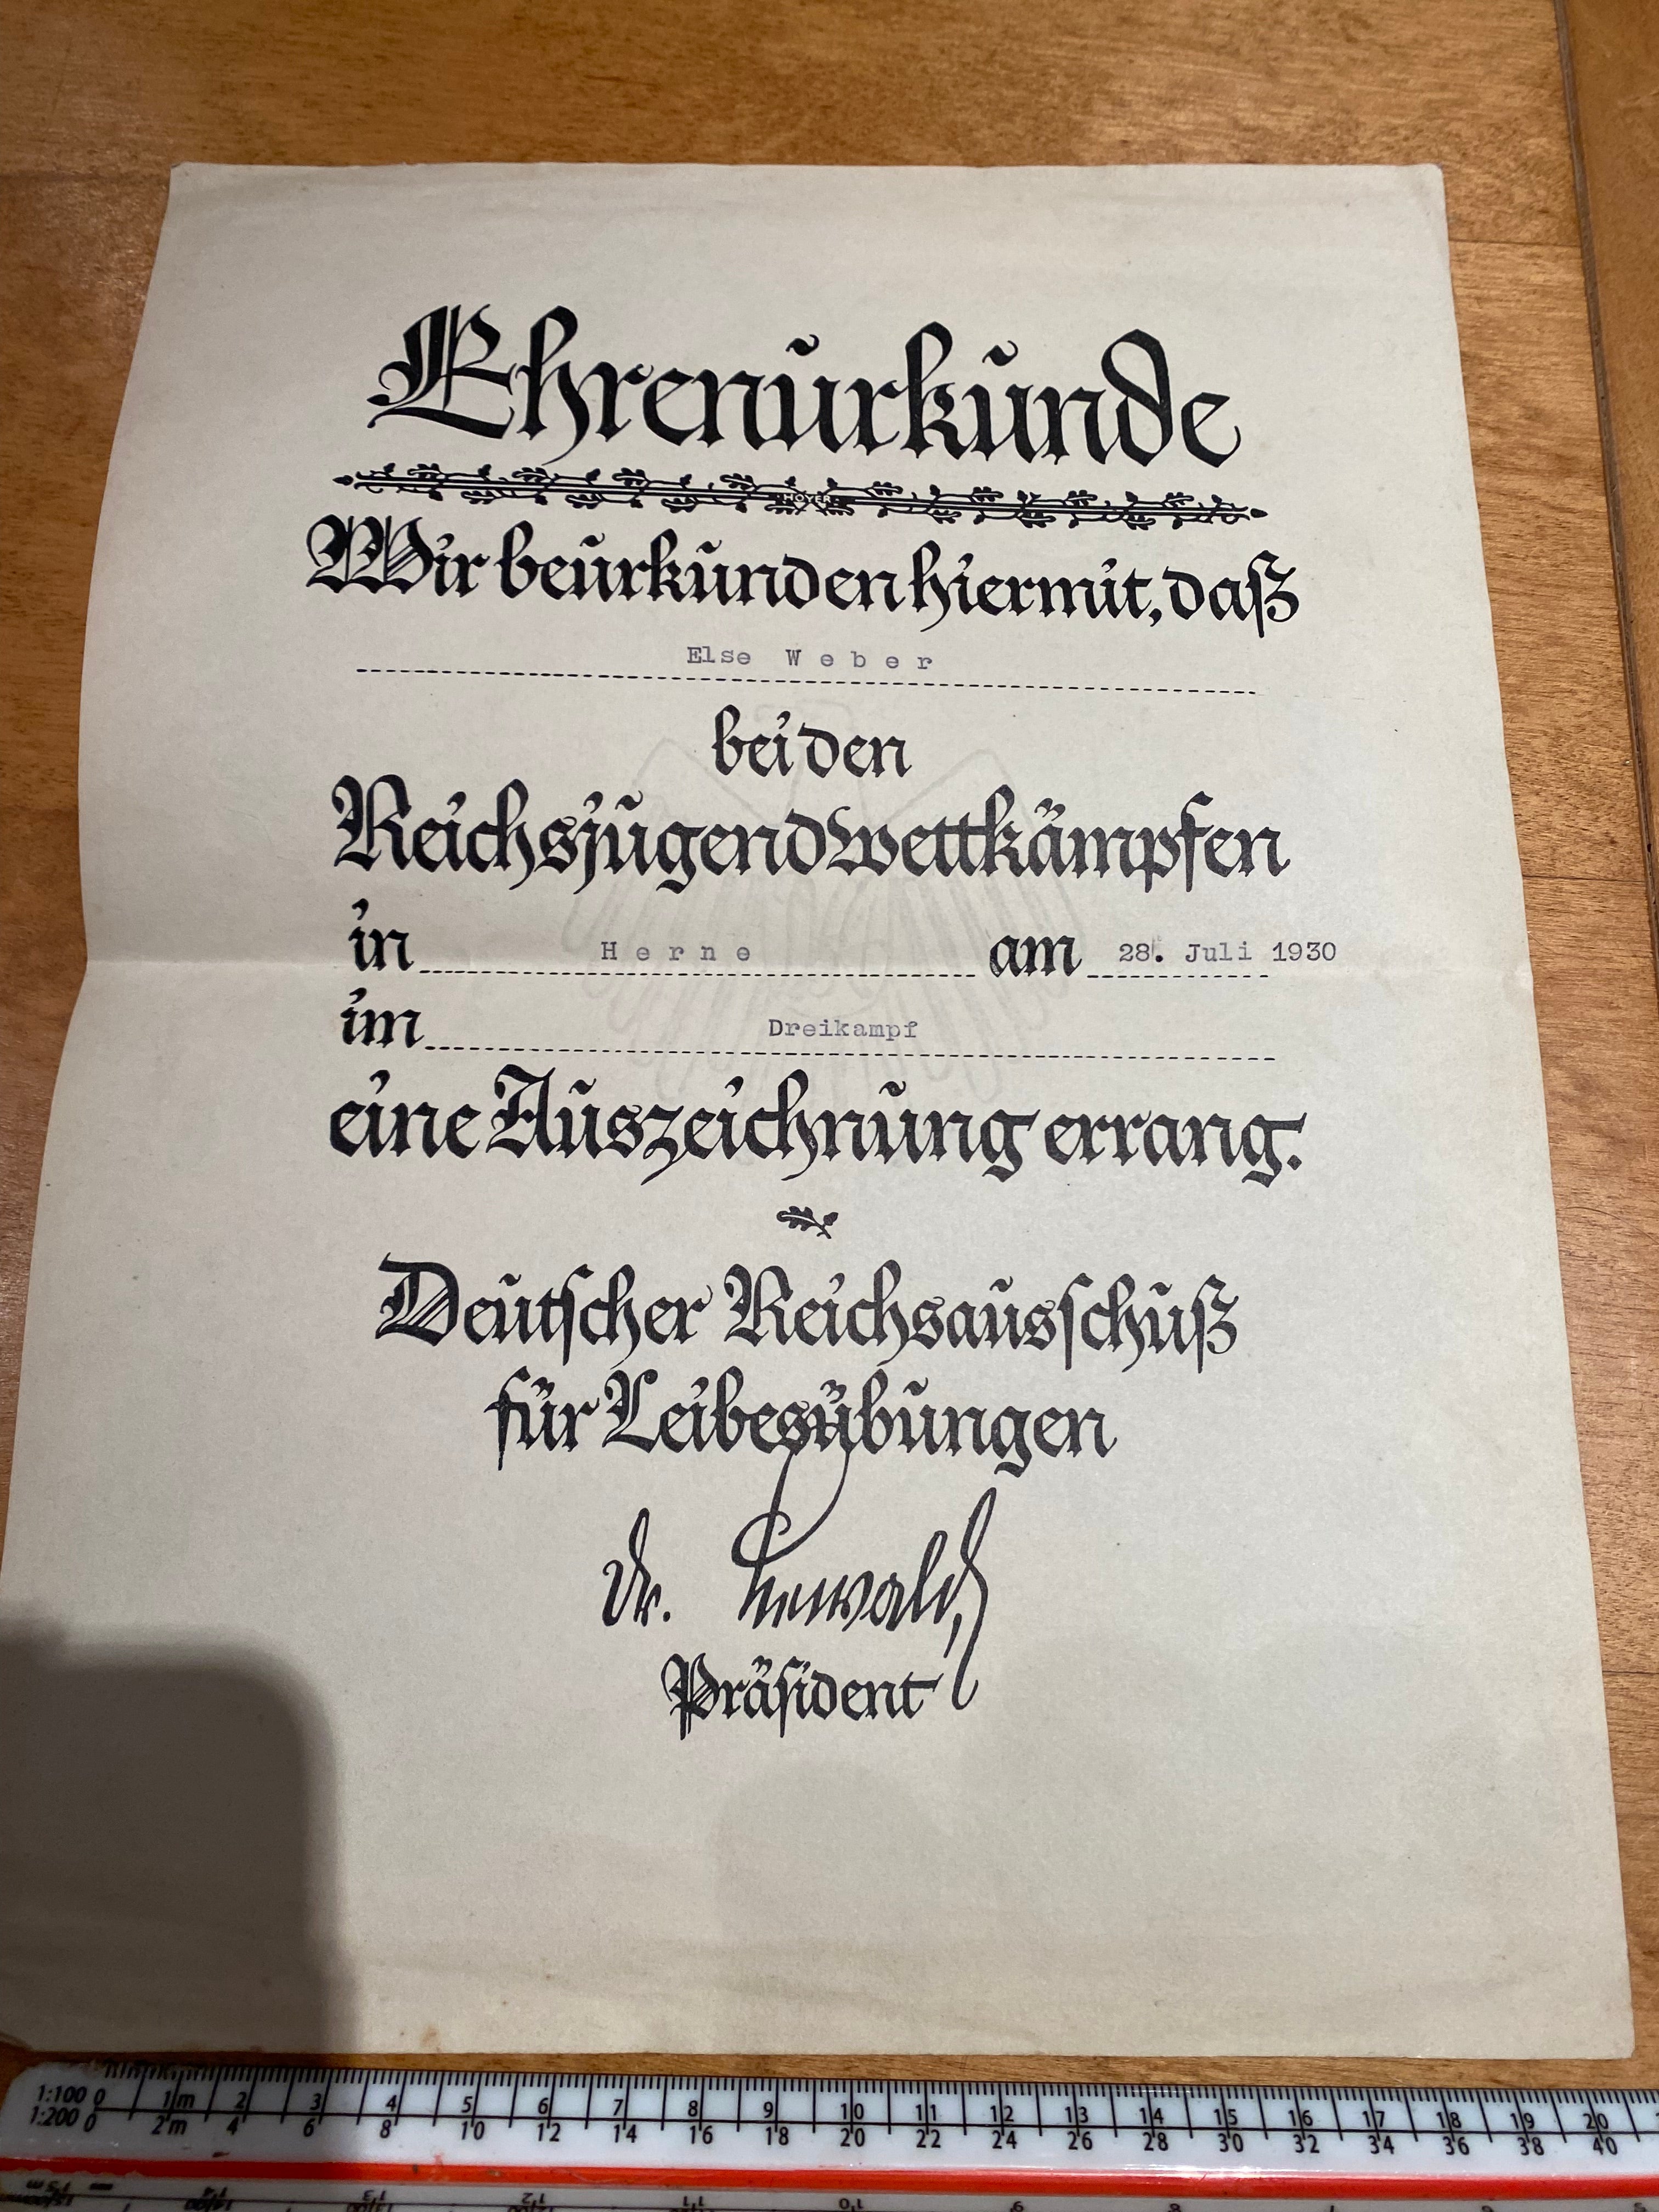 Ehrenurkunde
HOYER
Wir beurkunden hiermit, daß
Else Weber
bei den
Reichsjugendwettkämpfen
in Herne am 28. Juli 1930
im Dreikampf
eine Auszeichnung errang.
Deutscher Reichsausschuß
für Leibesübungen
Dr. Lewald,
Präsident
1:100 0 1m 2 3 4 5 6 7 8 9 10 11 12 13 14 15 16 17 18 19 20
1:200 0 2m 4 6 8 10 12 14 16 18 20 22 24 26 28 30 32 34 36 38 40